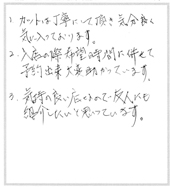 1. カットは丁寧にして頂き気分良く
気に入っております。
2. 入店の際希望の時間に併せて
予約出来大変助かっています。
3. 気持の良い店ですので友人にも
紹介したいと思っています。